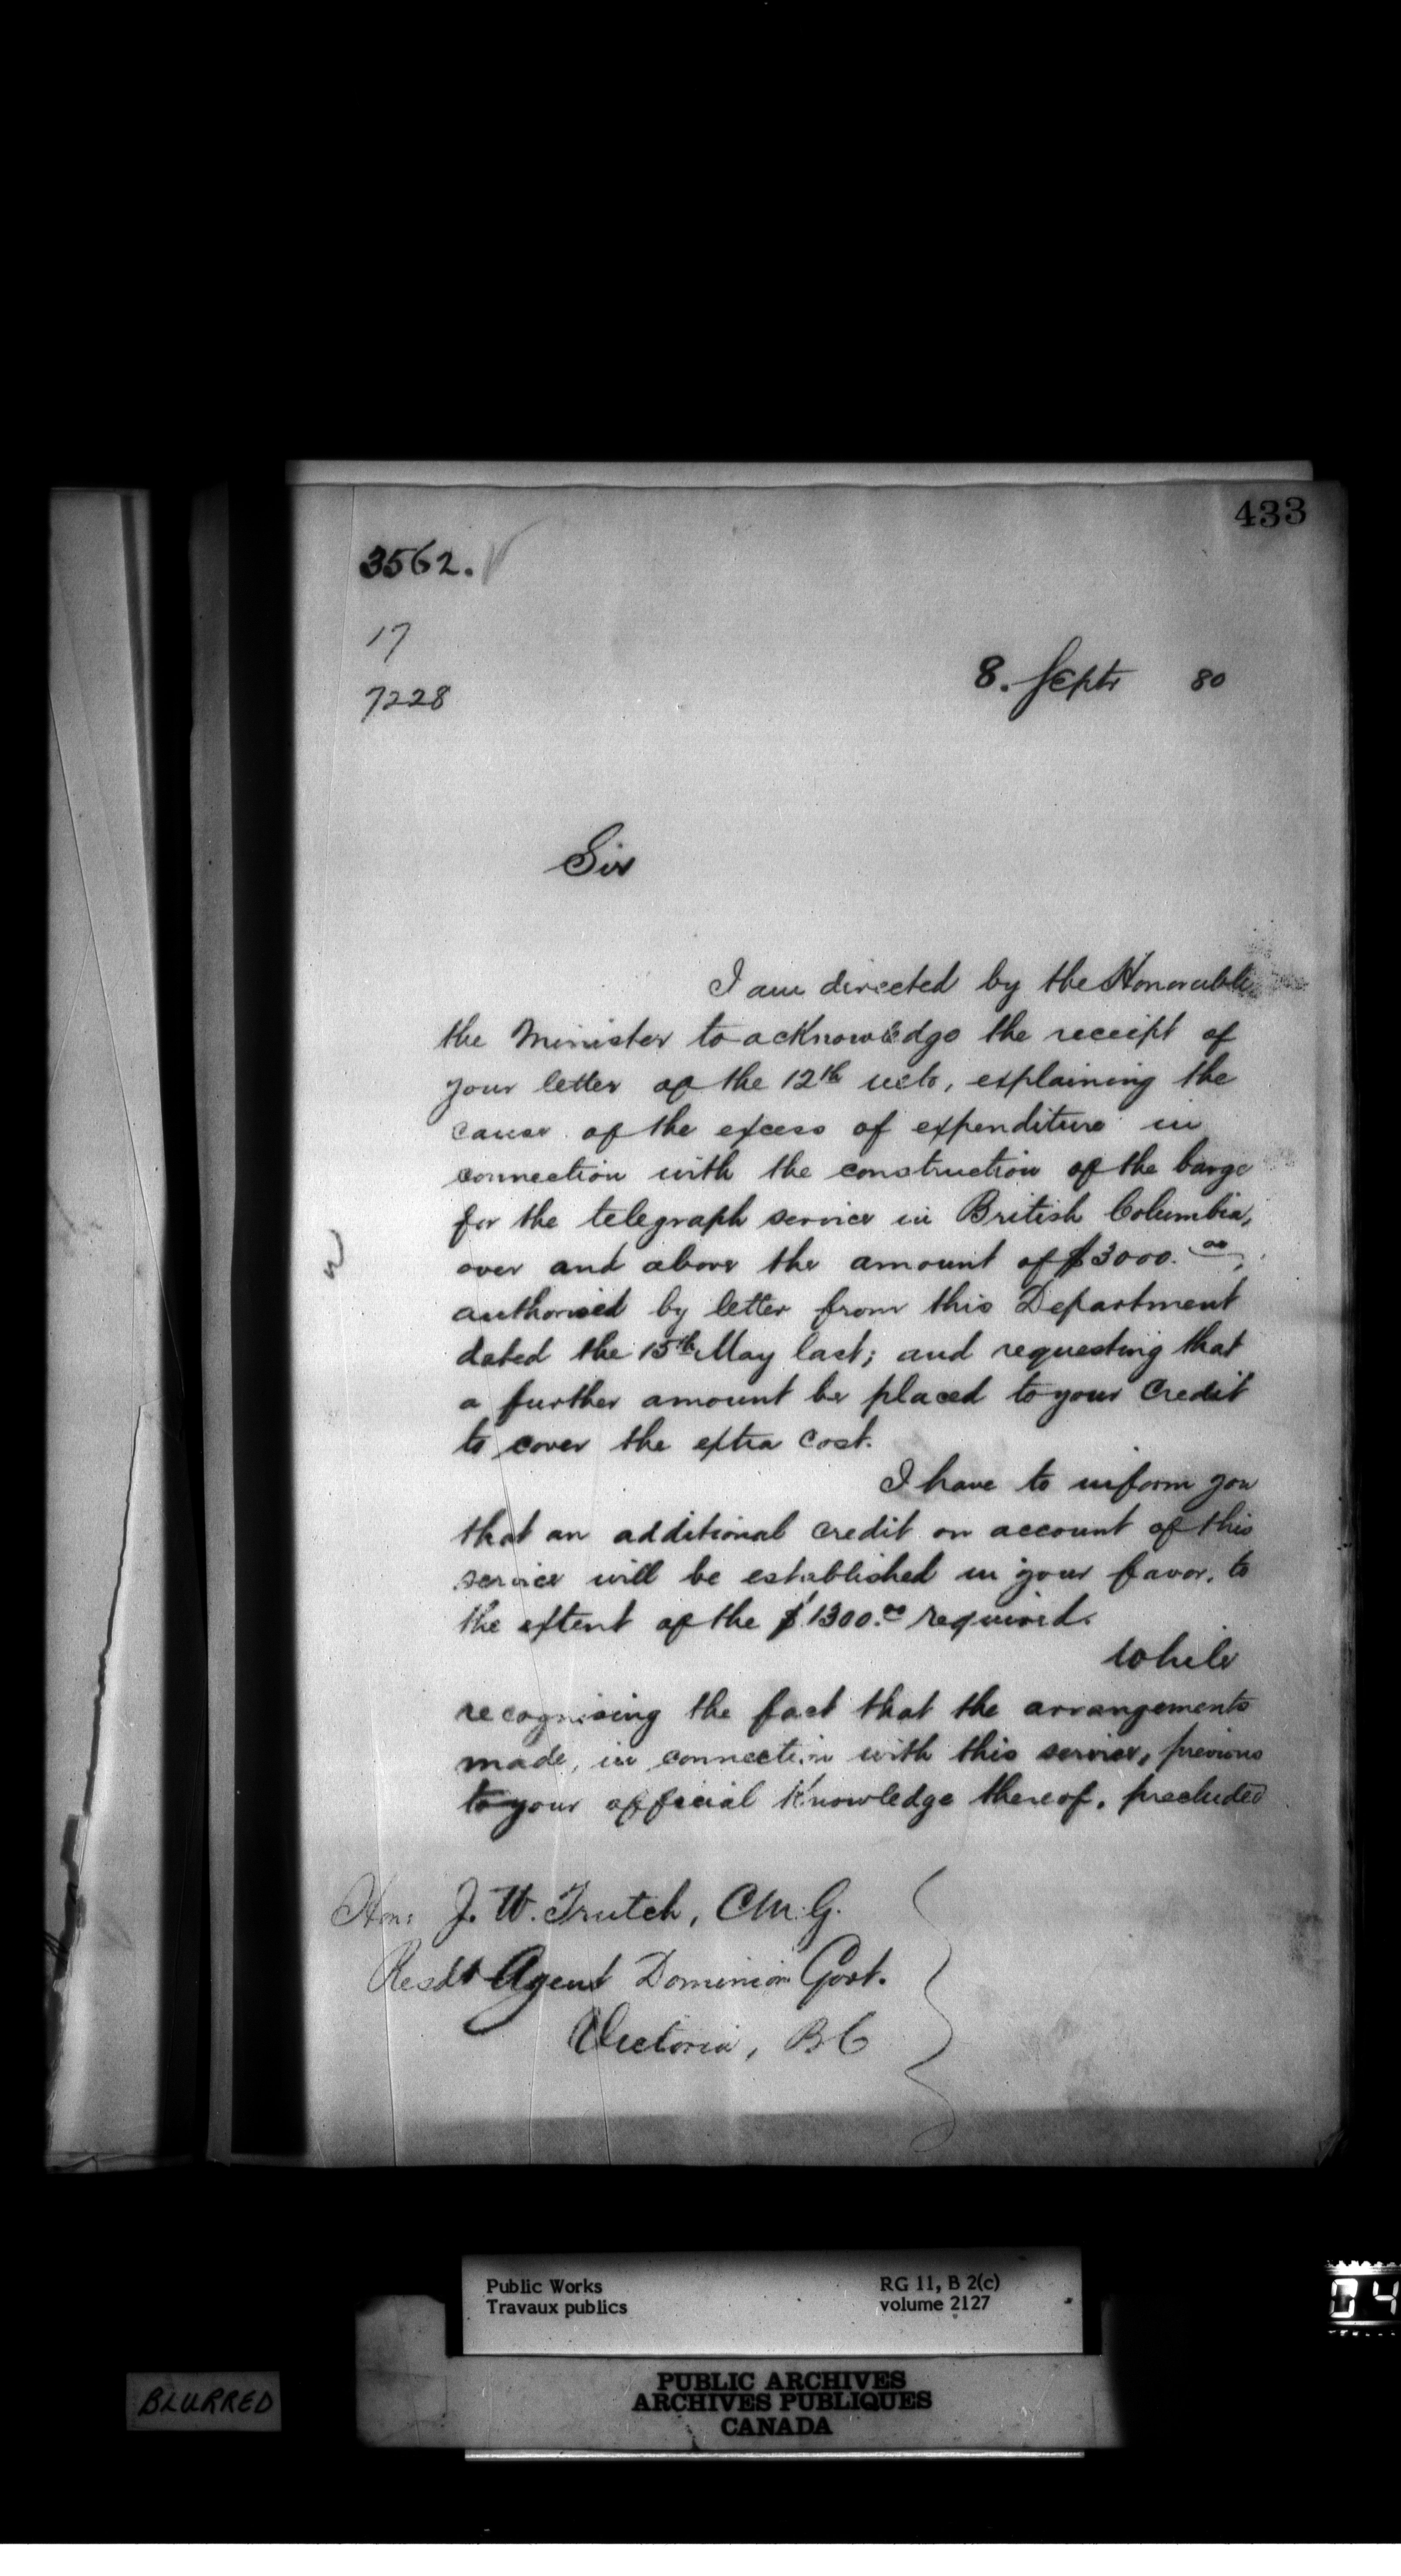 433
3562.
17
7228
8. Septr 80
Sir
I am directed by the Honorable
the Minister to acknowledge the receipt of
your letter of the 12th ulto, explaining the
cause of the excess of expenditure in
connection with the construction of the barge
for the telegraph service in British Columbia,
over and above the amount of $3000.00,
authorised by letter from this Department
dated the 15th May last; and requesting that
a further amount be placed to your Credit
to cover the extra cost.
I have to inform you
that an additional credit on account of this
service will be established in your favor, to
the extent of the $1300.00 required.
While
recognising the fact that the arrangements
made, in connection with this service, previous
to your official Knowledge thereof, precluded
Hon: J. W. Trutch, C.M.G.
Resdt Agent Dominion Govt.
Victoria, B C
Public Works
Travaux publics
RG 11, B 2(c)
volume 2127
04
BLURRED
PUBLIC ARCHIVES
ARCHIVES PUBLIQUES
CANADA